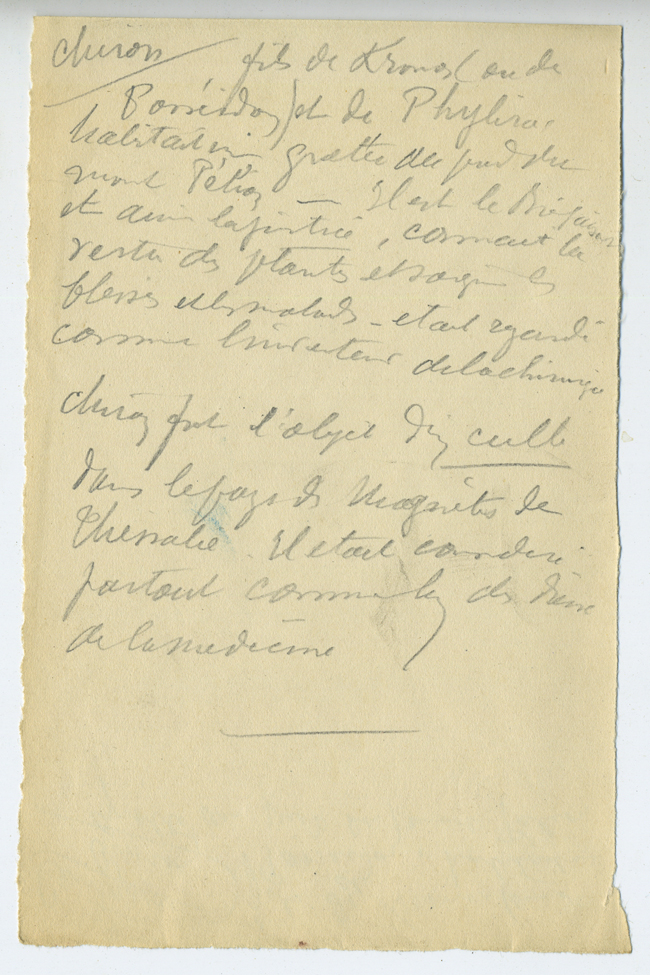 Chiron fils de Kronos (ou de
Poseidon) et de Phylira
habitait une grotte au pied du
mont Pélion — Il est le
et aime la justice, connait la
vertu des plantes et soigne les
blessés et les malades - etait regardé
comme l'inventeur de la chirurgie
Chiron fut l'objet d'un culte
dans le pays des Magnètes de
Thessalie. Il etait considéré
partout comme un des dieux
de la medecine